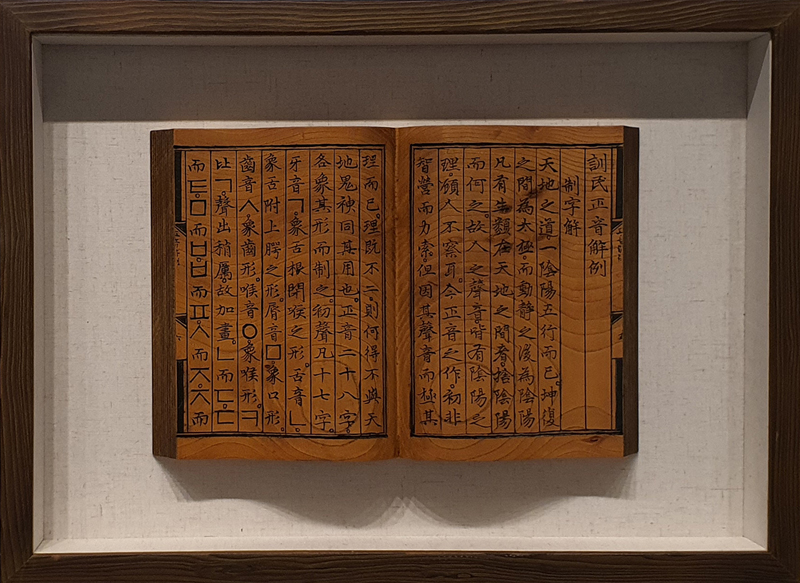 訓民正音解例
制字解
天地之道一陰陽五行而已。坤復
之間為太極。而動静之後為陰陽
凡有生類在天地之間者捨陰陽
而何之。故人之聲音皆有陰陽之
理。顧人不察耳。今正音之作。初非
智營而力索。但因其聲音而極其
理而已。理既不二。則何得不與天
地鬼神同其用也。正音二十八字。
各象其形而制之。初聲凡十七字。
牙音ㄱ。象舌根閉喉之形。舌音ㄴ。
象舌附上腭之形。脣音ㅁ。象口形。
齒音ㅅ。象齒形。喉音ㅇ。象喉形。ㅋ
比ㄱ。聲出稍厲。故加畫。ㄴ而ㄷ。ㄷ
而ㅌ。ㅁ而ㅂ。ㅂ而ㅍ。ㅅ而ㅈ。ㅈ而